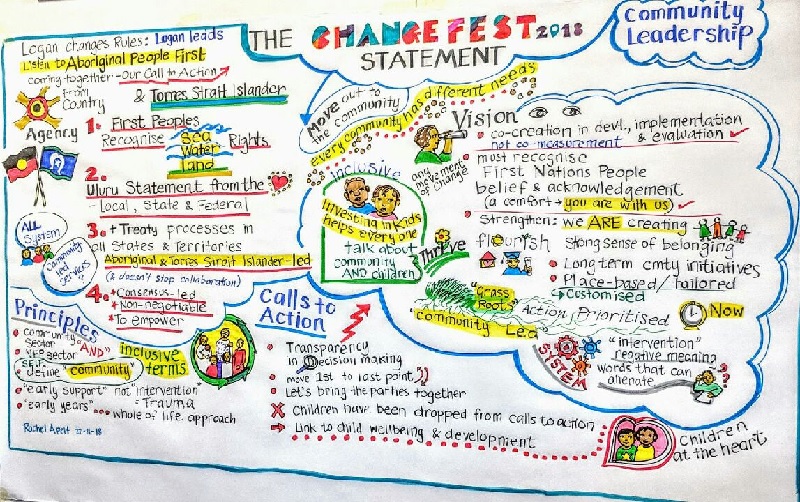 THE CHANGEFEST 2018
STATEMENT
Community
Leadership
Logan changes Rules: Logan leads
Listen to Aboriginal People First
coming together - Our Call to Action
From
Country
& Torres Strait Islander
Agency
1. First Peoples
Recognise Sea Water Land Rights
2.
Uluru Statement from the
Local, State & Federal
3. + Treaty processes in
all States & Territories
Aboriginal & Torres Strait Islander-led
(& doesn't stop collaboration)
ALL
System
Community
led
Services
4. + Consensus-led
+ Non-negotiable
+ To empower
Principles
community "AND"
Sector
sector
define "community"
inclusive
terms
"early support" not "intervention"
= Trauma
"early years"... whole of life approach
Move out to
the community
every community has different needs
inclusive
Investing in Kids
helps everyone
talk about
community
AND children
any
movement
of change
Thrive
Vision
co-creation in devl., implementation
& evaluation
not co-measurement
most recognise
First Nations People
belief & acknowledgement
(a comfort → you are with us)
Strengthen: we ARE creating
flourish
Strong sense of belonging
Long term cmty initiatives
Place-based / tailored
→ Customised
"Grass
Roots"
"community Led"
Action Prioritised
Now
SYSTEM
"intervention"
negative meaning
words that can
alienate
Calls to
Action
Transparency
in Decision making
move 1st to last point
Let's bring the parties together
Children have been dropped from calls to action
→ Link to child wellbeing & development
Children
at the heart